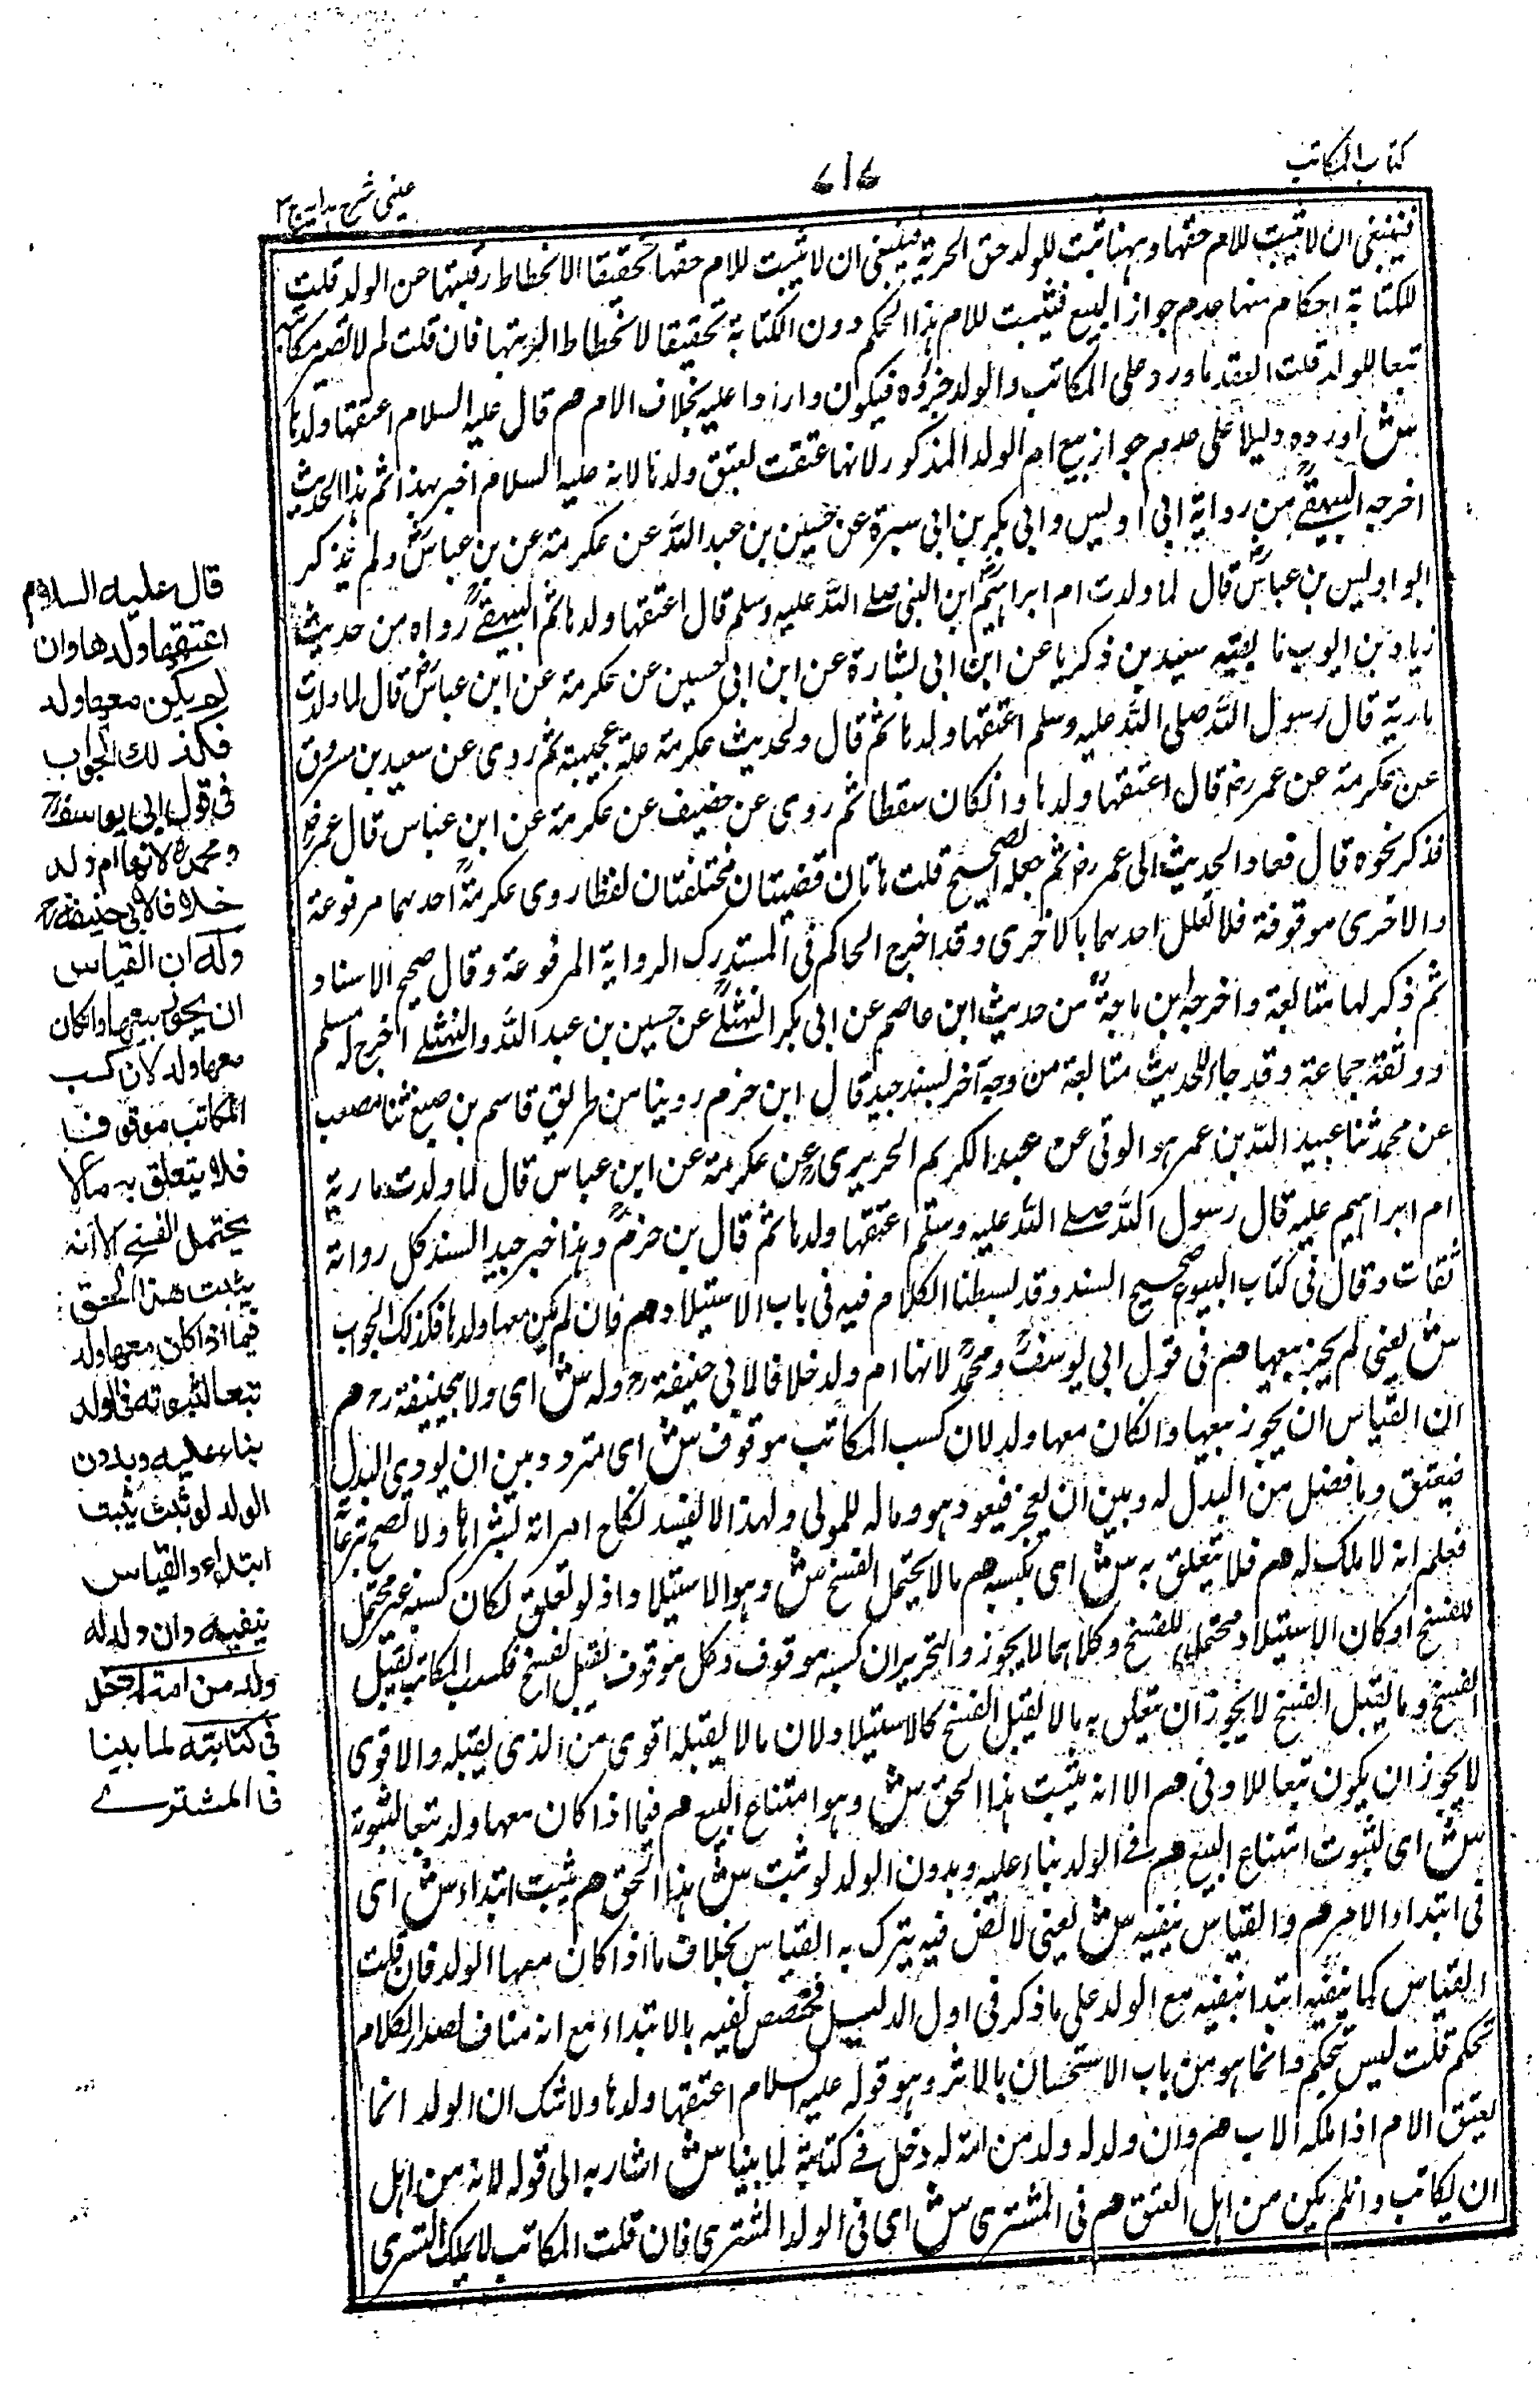 كتاب المكاتب
٧١٧
عينى شرح هدايہ ج٣
فينبغى ان لا تثبت للام حقها وههنا ثبت للولد حق الحرية فينبغى ان لا تثبت للام حقها تحقيقا لانحطاط رتبتها عن الولد قلت
للكتابة احكام منها عدم جواز البيع فتثبت للام هذا الحكم دون الكتابة تحقيقا لانحطاط رتبتها فان قلت لم لا تصير مكاتبة
تبعا للولد قلت العقد ما ورد على المكاتب والولد جزؤه فيكون واردا عليه بخلاف الام هم قال عليه السلام اعتقها ولدها
ش اورده دليلا على عدم جواز بيع ام الولد المذكور لانها عتقت لعتق ولدها لانه عليه السلام اخبر بهذا ثم هذا الحديث
اخرجه البيهقى من رواية ابى اويس وابى بكر بن ابى سبرة عن حسين بن عبد الله عن عكرمة عن بن عباس ولم يذكر
ابو اويس بن عباس قال لما ولدت ام ابراهيم ابن النبى صلى الله عليه وسلم قال اعتقها ولدها ثم البيهقى رواه من حديث
زياد بن ايوب نا بقيه سعيد بن زكريا عن ابن ابى بشارة عن ابن ابى حسين عن عكرمة عن ابن عباس قال لما ولدت
مارية قال رسول الله صلى الله عليه وسلم اعتقها ولدها ثم قال ولحديث عكرمة علة عجيبة ثم روى عن سعيد بن مسروق
عن عكرمة عن عمر رض قال اعتقها ولدها وانكان سقطا ثم روى عن خصيف عن عكرمة عن ابن عباس قال عمر رض
فذكر نحوه قال فعاد الحديث الى عمر رض ثم جعله الصحيح قلت هاتان قضيتان مختلفتان لفظا روى عكرمة احدهما مرفوعة
والاخرى موقوفة فلا تعلل احدهما بالاخرى وقد اخرج الحاكم فى المستدرك الرواية المرفوعة وقال صحيح الاسناد
ثم ذكر لها متابعة واخرجه ابن ماجة من حديث ابن عاصم عن ابى بكر النهشلى عن حسين بن عبد الله والنهشلى اخرج له مسلم
ووثقه جماعة وقد جاء للحديث متابعة من وجه آخر بسند جيد قال ابن حزم روينا من طريق قاسم بن صبغ ثنا مصعب
عن محمد ثنا عبيد الله بن عمر هو الوقى عن عبد الكريم الجزيرى عن عكرمة عن ابن عباس قال لما ولدت مارية
ام ابراهيم عليه قال رسول الله صلى الله عليه وسلم اعتقها ولدها ثم قال بن حزم وهذا خبر جيد السند كل رواته
ثقات وقال فى كتاب البيوع صحيح السند وقد بسطنا الكلام فيه فى باب الاستيلاد هم فان لم يكن معها ولدها فكذلك الجواب
ش يعنى لم يجز بيعها هم فى قول ابى يوسف ومحمد لانها ام ولد خلافا لابى حنيفة رح وله ش اى ولابيحنيفة رح هم
ان القياس ان يجوز بيعها وانكان معها ولد لان كسب المكاتب موقوف ش اى متردد بين ان يودى البدل
فيعتق وما فضل من البدل له وبين ان يعجز فيعود هو وماله للمولى ولهذا لا يفسد نكاح امرأته بشرائها ولا تصح تبرعاته
فعلم انه لا ملك له هم فلا يتعلق به ش اى بكسبه هم ما لا يحتمل الفسخ ش وهو الاستيلاد اذ لو تعلق لكان كسبه غير محتمل
للفسخ او كان الاستيلاد محتملا للفسخ وكلاهما لا يجوز والتحرير ان كسبه موقوف وكل موقوف يقبل الفسخ فكسب المكاتب يقبل
الفسخ وما يقبل الفسخ لا يجوز ان يتعلق به ما لا يقبل الفسخ كالاستيلاد لان ما لا يقبله اقوى من الذى يقبله والاقوى
لا يجوز ان يكون تبعا للادنى هم الا انه يثبت هذا الحق ش وهو امتناع البيع هم فيما اذا كان معها ولد تبعا لثبوته
ش اى لثبوت امتناع البيع هم فى الولد بناء عليه وبدون الولد لو ثبت ش هذا الحق هم يثبت ابتداء ش اى
فى ابتداء الامر هم والقياس ينفيه ش يعنى لا نص فيه يترك به القياس بخلاف ما اذا كان معها الولد فان قلت
القياس كما ينفيه ابتدا ينفيه مع الولد على ما ذكر فى اول الدليل فتخصص نفيه بالابتداء مع انه مناف لصدر الكلام
تحكم قلت ليس تحكم وانما هو من باب الاستحسان بالاثر وهو قوله عليه السلام اعتقها ولدها ولا شك ان الولد انما
يعتق الام اذا ملكه الاب هم وان ولد له ولد من امة له دخل فى كتابته لما بينا ش اشار به الى قوله لانه من اهل
ان يكاتب وانلم يكن من اهل العتق هم فى المشترى ش اى فى الولد المشترى فان قلت المكاتب لا يملك التسرى
قال عليه السلام
اعتقها ولدها وان
لم يكن معها ولد
فكذلك الجواب
فى قول ابى يوسف رح
ومحمد رح لانها ام ولد
خلافا لابى حنيفة رح
وله ان القياس
ان يجوز بيعها وانكان
معها ولد لان كسب
المكاتب موقوف
فلا يتعلق به ما لا
يحتمل الفسخ الا انه
يثبت هذا الحق
فيما اذا كان معها ولد
تبعا لثبوته فى الولد
بناء عليه وبدون
الولد لو ثبت يثبت
ابتداء والقياس
ينفيه وان ولد له
ولد من امة له دخل
فى كتابته لما بينا
فى المشترى